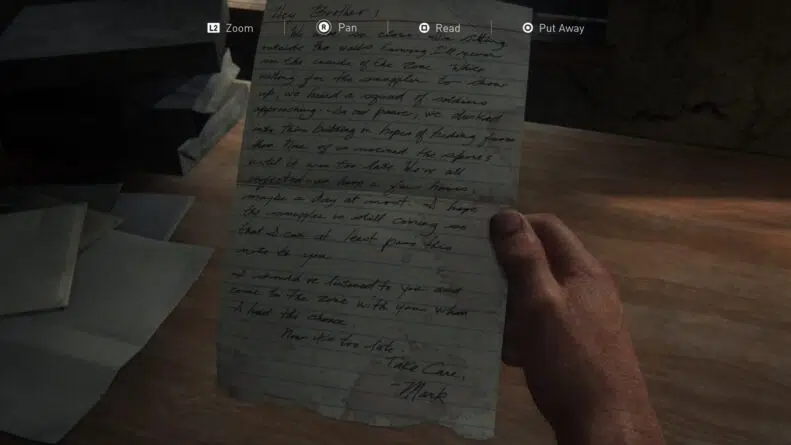 L2 Zoom R Pan Read Put Away
Hey Brother,
We are so close. I'm sitting
outside the walls knowing I'll never
see the inside of the zone. While
waiting for the smuggler to show
up, we heard a squad of soldiers
approaching. In our panic, we ducked
into this building in hopes of hiding from
them. None of us noticed the spores
until it was too late. We're all
infected - we have a few hours,
maybe a day at most. I hope
the smuggler is still coming so
that I can at least pass this
note to you.
I should've listened to you and
come to the zone with you when
I had the chance.
Now it's too late.
Take Care,
-Mark